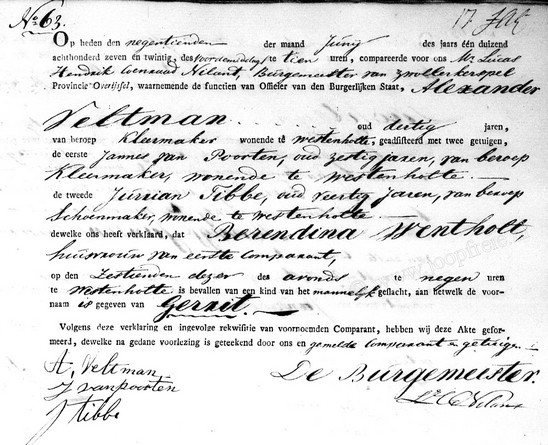 No 63.
Op heden den negentienden der maand Junij des jaars één duizend
achthonderd zeven en twintig, des voormiddags te tien uren, compareerde voor ons Mr. Lucas
Hendrik Coenraad Nilant, Burgemeester van Zwollerkerspel
Provincie Overijssel, waarnemende de functien van Officier van den Burgerlijken Staat, Alexander
Veltman oud dertig jaren,
van beroep Kleermaker wonende te Westenholte, geadsisteerd met twee getuigen,
de eerste Jannes van Poorten, oud zestig jaren, van beroep
Kleermaker, wonende te Westenholte.
de tweede Jurrian Tibbe, oud veertig Jaren, van beroep
Schoenmaker, wonende te Westenholte.
dewelke ons heeft verklaard, dat Berendina Wentholt,
huisvrouw van eerste Comparant,
op den Zestienden dezer des avonds te negen uren
te Westenholte is bevallen van een kind van het mannelijk geslacht, aan hetwelk de voor-
naam is gegeven van Gerrit.
Volgens deze verklaring en ingevolge rekwisitie van voornoemden Comparant, hebben wij deze Akte gefor-
meerd, dewelke na gedane voorlezing is geteekend door ons en gemelde Comparant en getuigen.
A, Veltman
J van poorten
J tibbe
De Burgemeester.